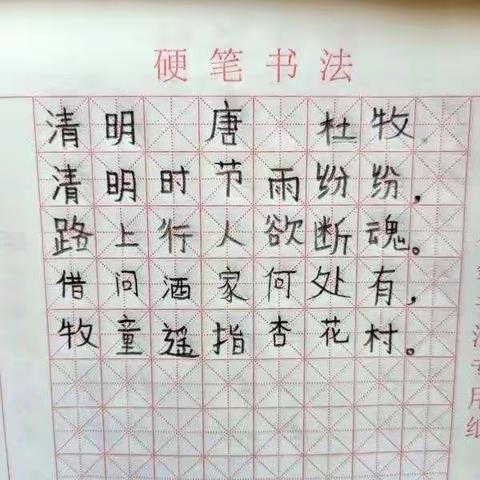 硬笔书法
清明 唐 杜牧
清明时节雨纷纷，
路上行人欲断魂。
借问酒家何处有，
牧童遥指杏花村。